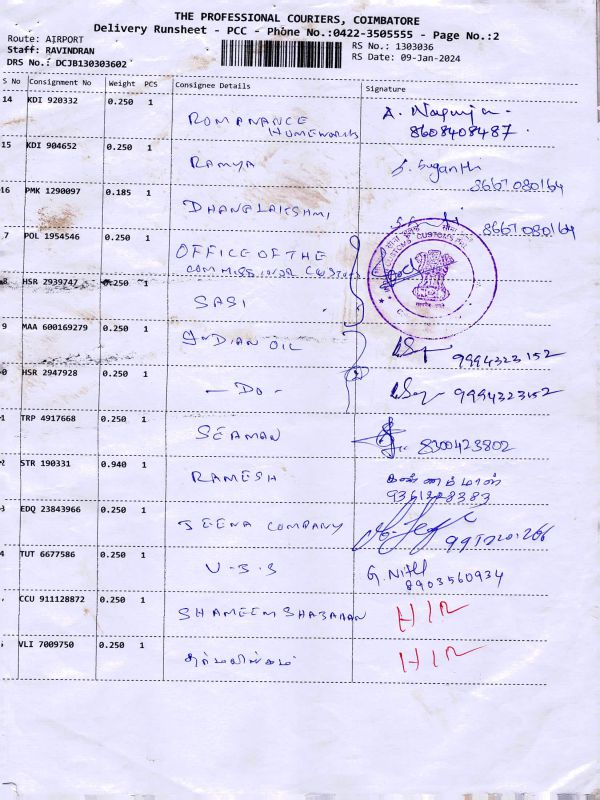 THE PROFESSIONAL COURIERS, COIMBATORE
Delivery Runsheet - PCC - Phone No.:0422-3505555 - Page No.:2
Route: AIRPORT
Staff: RAVINDRAN
DRS No.: DCJB130303602
RS No.: 1303036
RS Date: 09-Jan-2024
S No Consignment No Weight PCS Consignee Details Signature
14 KDI 920332 0.250 1 ROMANANCE HOMEWORKS
8608408487
15 KDI 904652 0.250 1 RAMYA S. Suganthi
8667080164
16 PMK 1290097 0.185 1 DHANALAKSHMI 8667080164
7 POL 1954546 0.250 1 OFFICE OF THE
8 HSR 2939747 0.250 1 SASI
9 MAA 600169279 0.250 1 INDIAN OIL 9994323152
0 HSR 2947928 0.250 1 - DO - 9994323152
1 TRP 4917668 0.250 1 SEAMAN 8300423802
2 STR 190331 0.940 1 RAMESH
3 EDQ 23843966 0.250 1 JEENA COMPANY
4 TUT 6677586 0.250 1 G. Nithi
8903560934
CCU 911128872 0.250 1 SHAMEEM
VLI 7009750 0.250 1 தர்மலிங்கம்